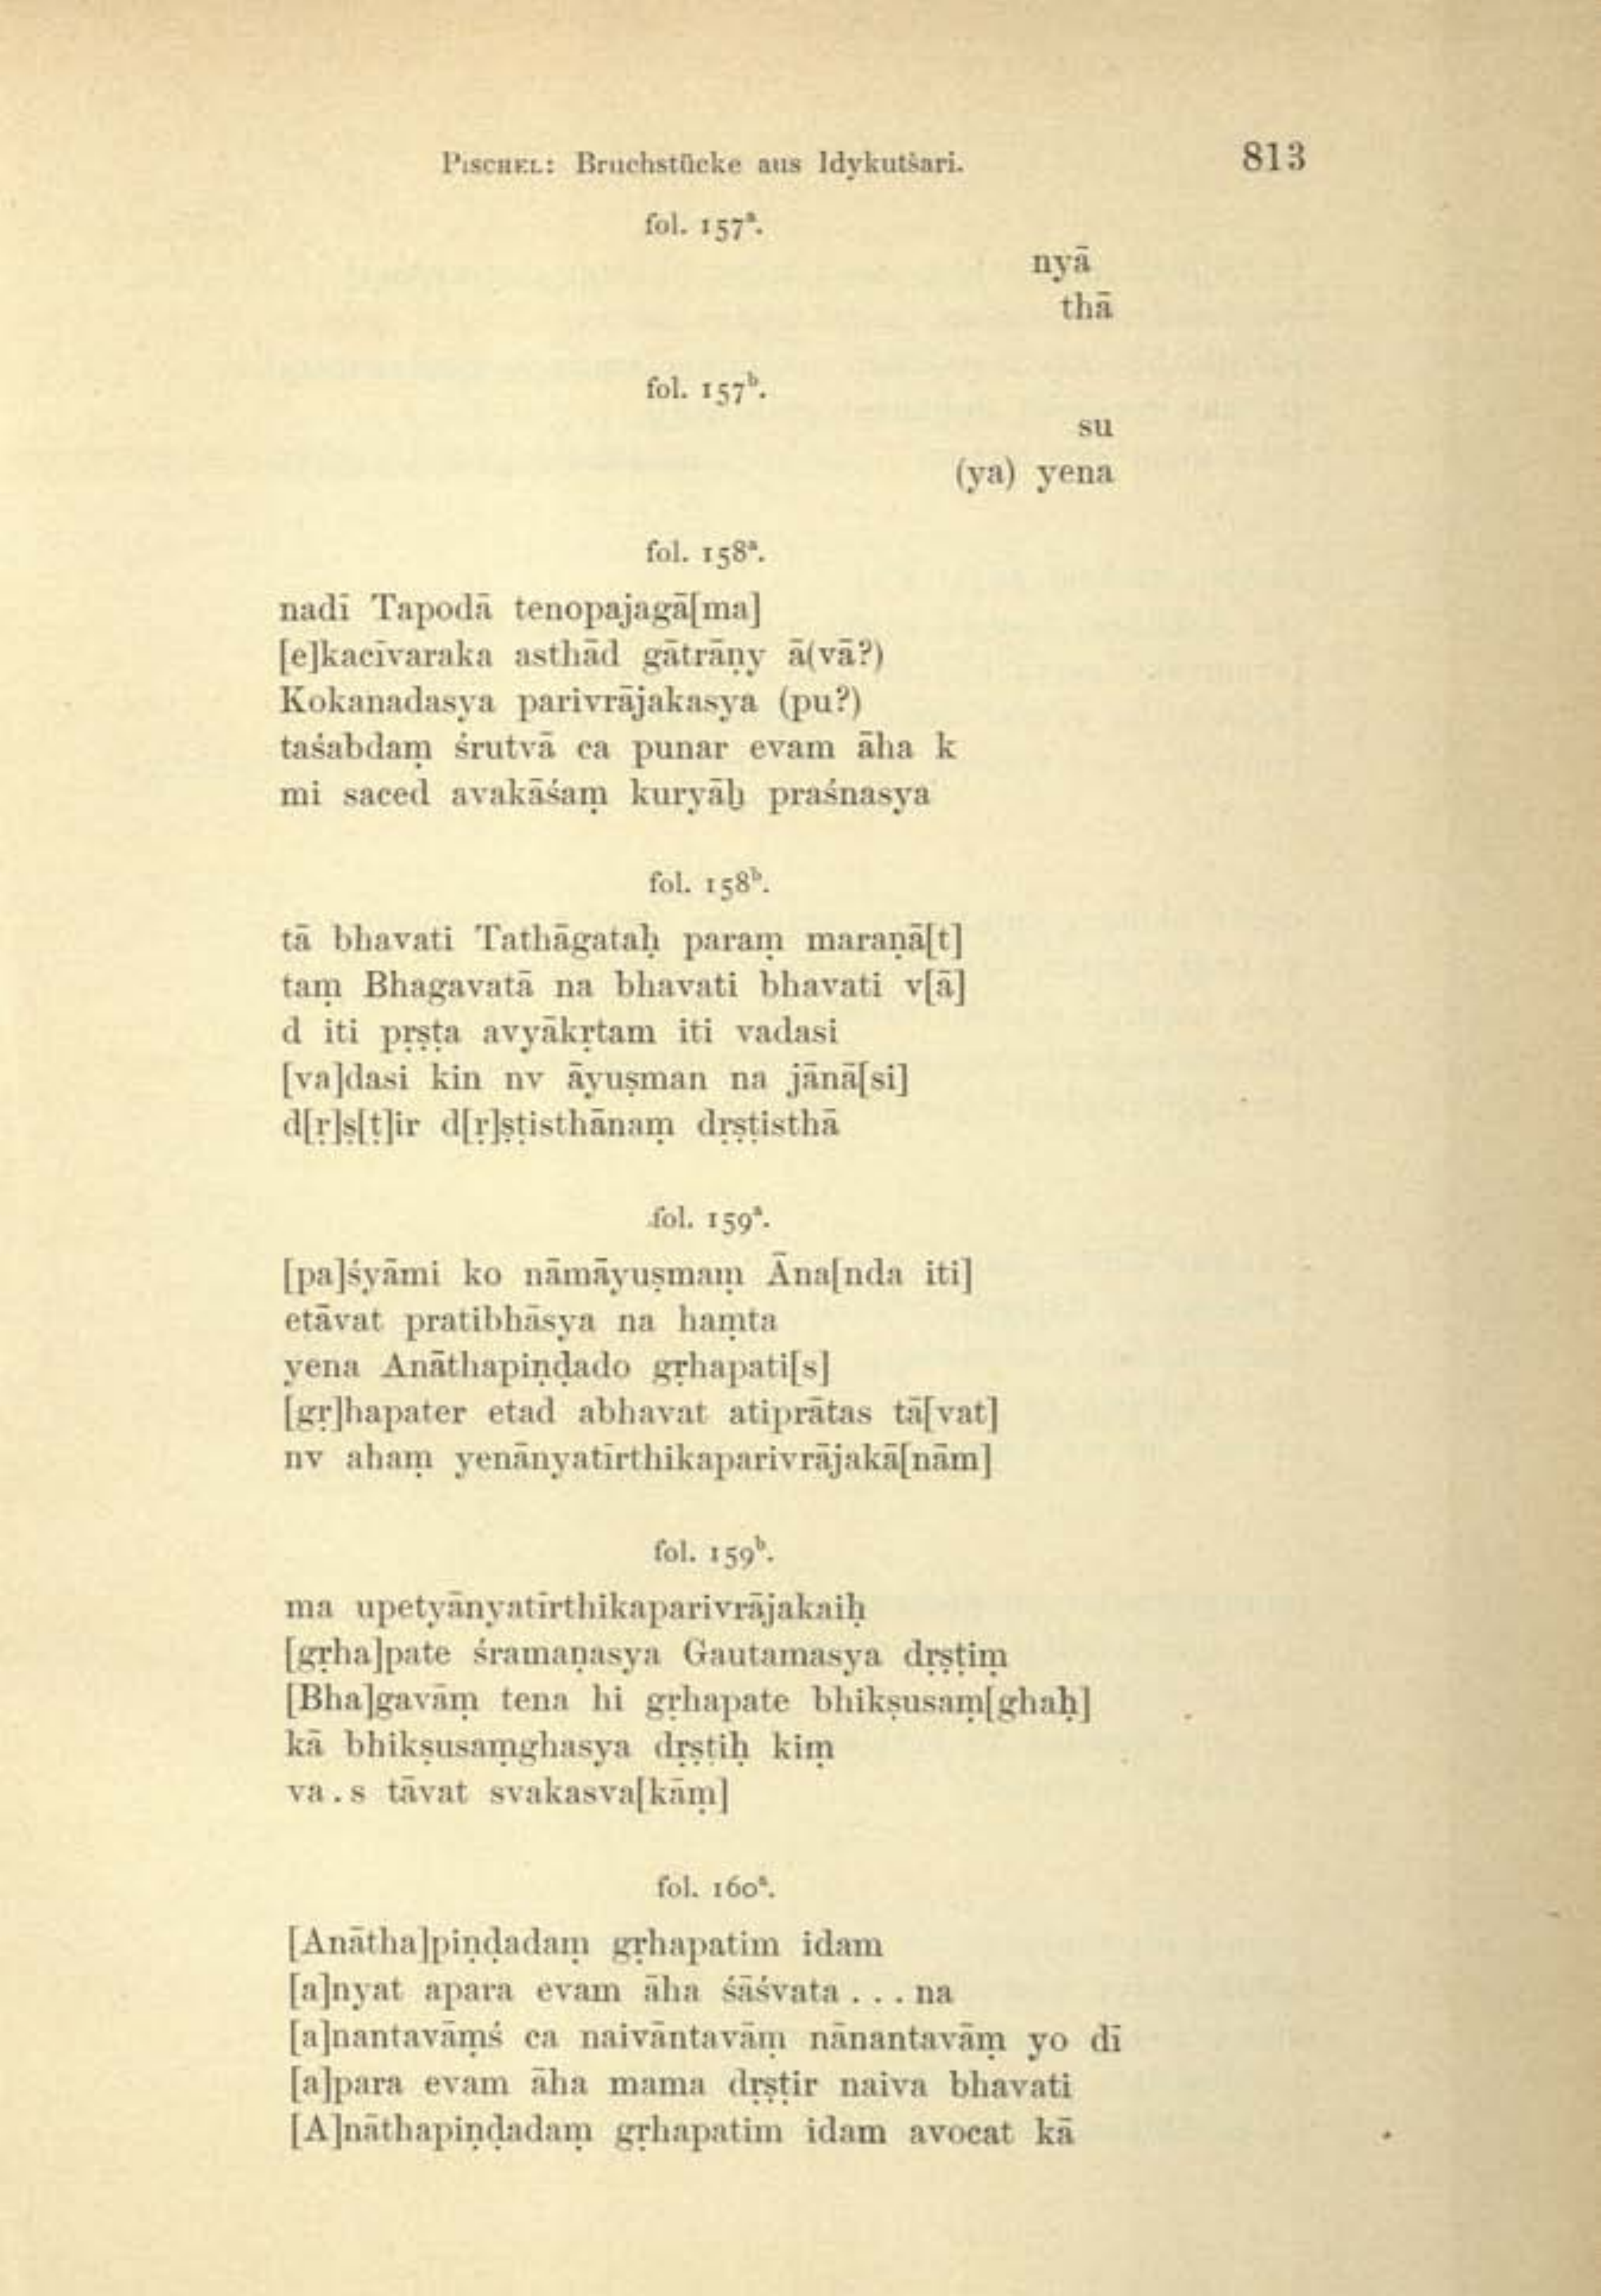 PISCHEL: Bruchstücke aus Idykutšari. 813
fol. 157ᵃ.
nyā
thā
fol. 157ᵇ.
su
(ya) yena
fol. 158ᵃ.
nadī Tapodā tenopajagā[ma]
[e]kacīvaraka asthād gātrāṇy ā(vā?)
Kokanadasya parivrājakasya (pu?)
taśabdaṃ śrutvā ca punar evam āha k
mi saced avakāśaṃ kuryāḥ praśnasya
fol. 158ᵇ.
tā bhavati Tathāgataḥ paraṃ maraṇā[t]
taṃ Bhagavatā na bhavati bhavati v[ā]
d iti pṛṣṭa avyākṛtam iti vadasi
[va]dasi kin nv āyuṣman na jānā[si]
d[ṛ]ṣ[ṭ]ir d[ṛ]ṣṭisthānaṃ dṛṣṭisthā
fol. 159ᵃ.
[pa]śyāmi ko nāmāyuṣmaṃ Āna[nda iti]
etāvat pratibhāsya na haṃta
yena Anāthapiṇḍado gṛhapati[s]
[gṛ]hapater etad abhavat atiprātas tā[vat]
nv ahaṃ yenānyatīrthikaparivrājakā[nām]
fol. 159ᵇ.
ma upetyānyatīrthikaparivrājakaiḥ
[gṛha]pate śramaṇasya Gautamasya dṛṣṭiṃ
[Bha]gavāṃ tena hi gṛhapate bhikṣusaṃ[ghaḥ]
kā bhikṣusaṃghasya dṛṣṭiḥ kiṃ
va . s tāvat svakasva[kāṃ]
fol. 160ᵃ.
[Anātha]piṇḍadaṃ gṛhapatim idam
[a]nyat apara evam āha śāśvata . . . na
[a]nantavāṃś ca naivāntavāṃ nānantavāṃ yo dī
[a]para evam āha mama dṛṣṭir naiva bhavati
[A]nāthapiṇḍadaṃ gṛhapatim idam avocat kā